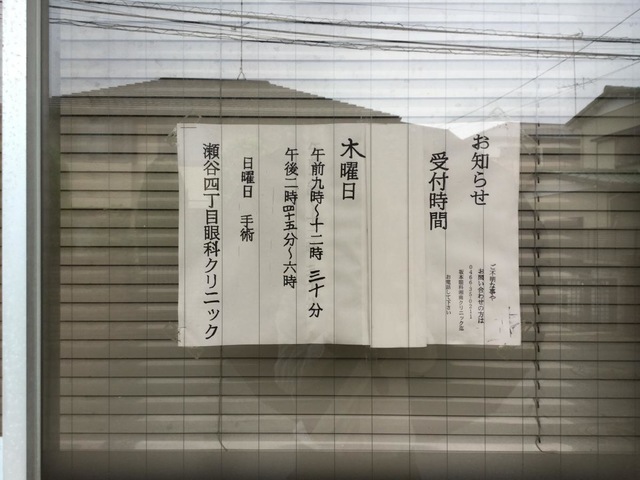 お知らせ
ご不明な事や
お問い合わせの方は
お電話して下さい
受付時間
木曜日
午前九時～十二時 三十分
午後二時四十五分～六時
日曜日 手術
瀬谷四丁目眼科クリニック